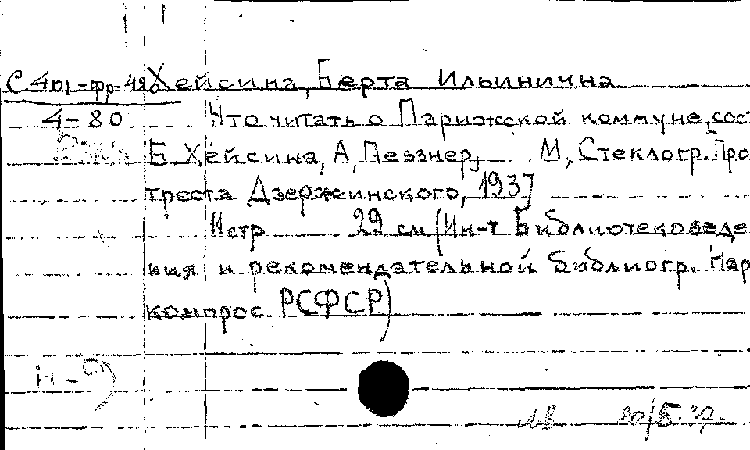 Хейсина, Берта Ильинична
4-80 Что читать о Парижской коммуне, сост
Б. Хейсина, А. Певзнер, М, Стеклогр. Про
треста Дзержинского, 1937
29 см (Ин-т Библиотековеде
ния и рекомендательной библиогр. Нар
компрос РСФСР)